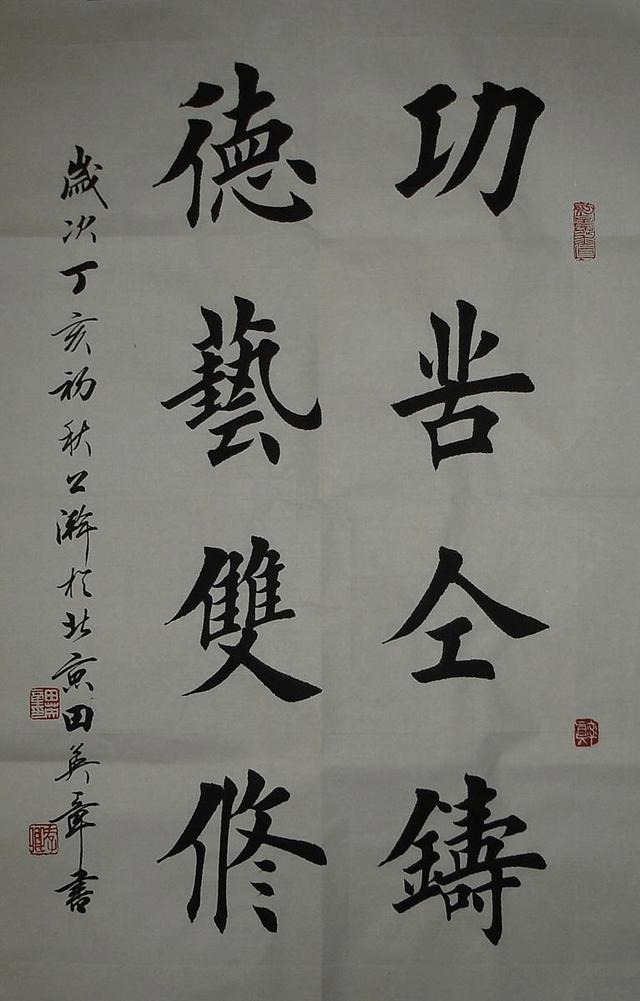 功苦仝鑄
德藝雙修
歲次丁亥初秋公瀚於北京田英章書